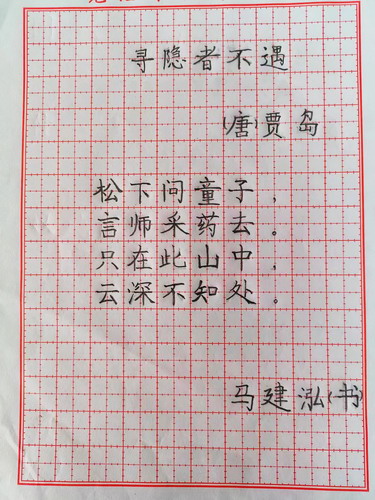 寻隐者不遇
(唐)贾岛
松下问童子，
言师采药去。
只在此山中，
云深不知处。
马建泓(书)